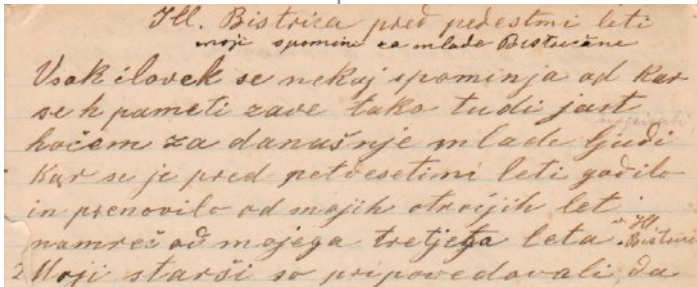 Ill. Bistrica pred pedestmi leti
moji spomini za mlade Bistričane
Vsak človek se nekaj spominja od kar
se h pameti zave tako tudi jast
hočem za današnje mlade ljudi
Kar se je pred petdesetimi leti godilo
in prenovilo od mojih otročjih let
namreč od mojega tretjega leta v Ill. Bistrici
Moji starši so pripovedovali da